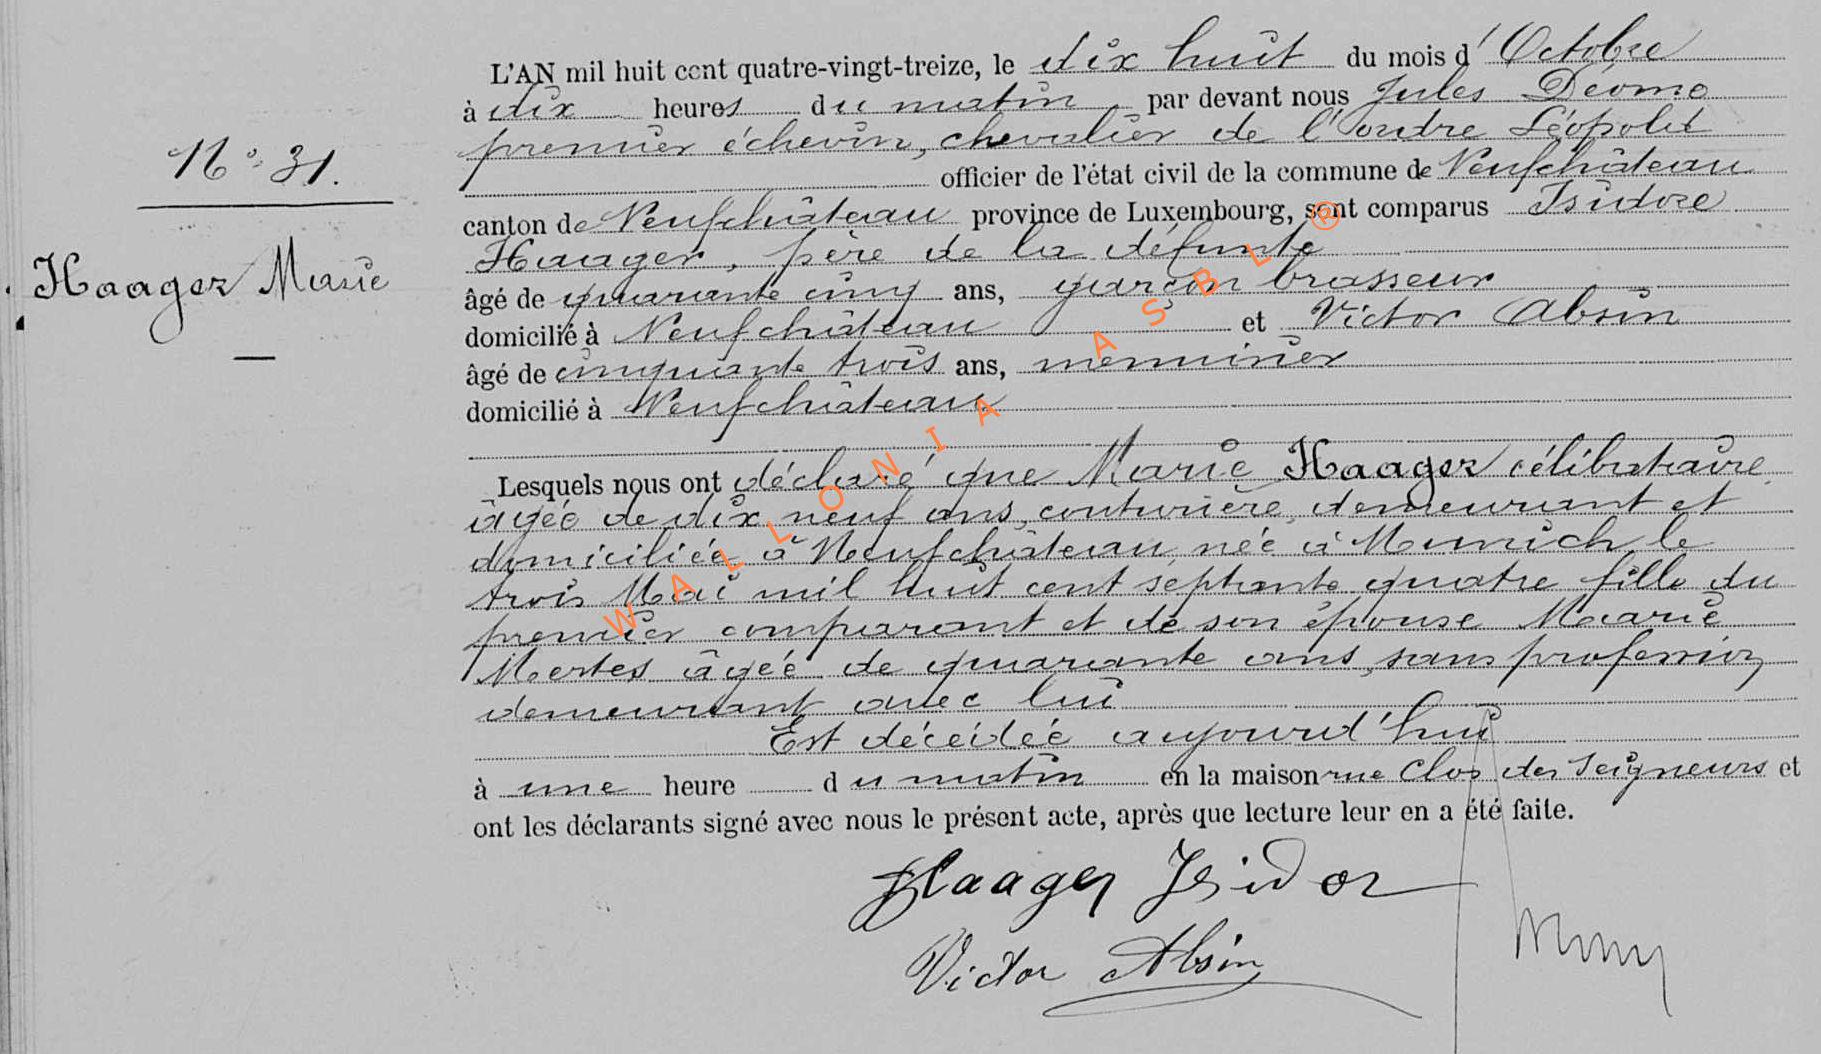 L'AN mil huit cent quatre-vingt-treize, le dix huit du mois d'Octobre
à dix heures du matin, par devant nous Jules Déome
premier échevin, chevalier de l'ordre Léopold
N° 31.
officier de l'état civil de la commune de Neufchâteau
canton de Neufchâteau province de Luxembourg, sont comparus Isidore
Haager, père de la défunte
Haager Marie
âgé de quarante cinq ans, garçon brasseur
domicilié à Neufchâteau et Victor Absin
âgé de cinquante trois ans, menuisier
domicilié à Neufchâteau
Lesquels nous ont déclaré que Marie Haager célibataire
âgée de dix neuf ans, couturière, demeurant et
domiciliée à Neufchâteau, née à Munich le
trois Mai mil huit cent septante quatre fille du
premier comparant et de son épouse Marie
Mertes âgée de quarante ans, sans profession
demeurant avec lui
Est décédée aujourd'hui
à une heure du matin en la maison rue Clos des Seigneurs et
ont les déclarants signé avec nous le présent acte, après que lecture leur en a été faite.
Haager Isidor
Victor Absin
WALLONIA ASBL ®